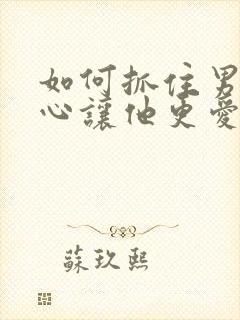 如何抓住男
心讓他更愛
蘇玖熙